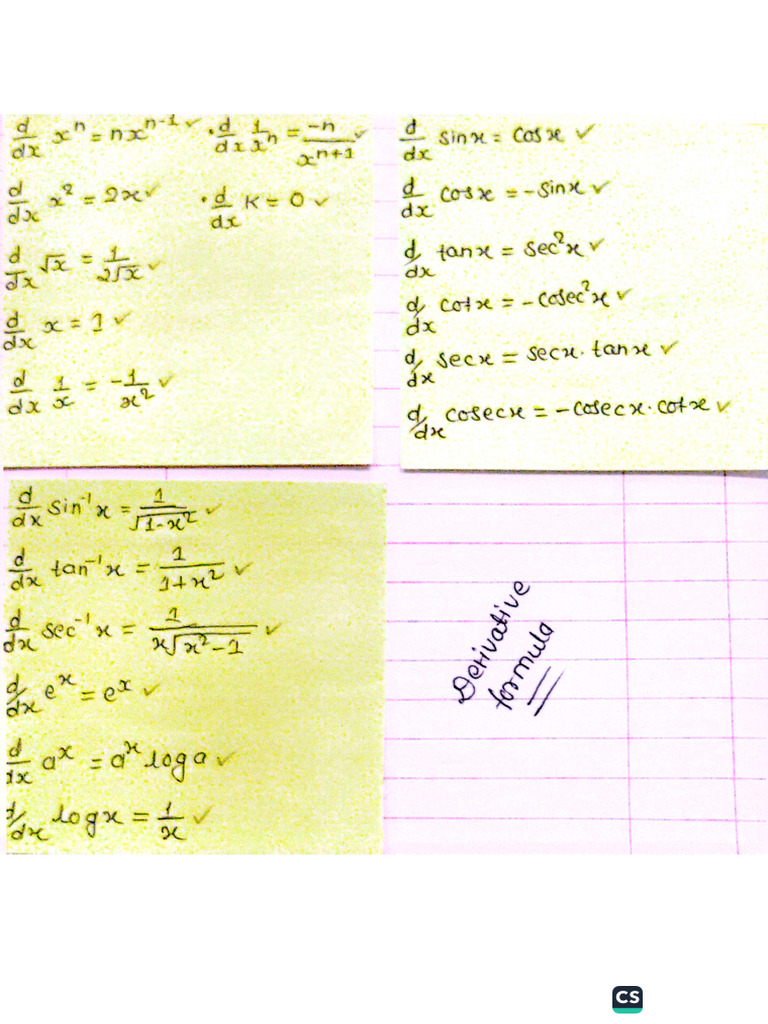 d/dx xⁿ = nxⁿ⁻¹ ✓ • d/dx 1/xⁿ = -n/xⁿ⁺¹ ✓
d/dx x² = 2x ✓ • d/dx K = 0 ✓
d/dx √x = 1/2√x ✓
d/dx x = 1 ✓
d/dx 1/x = -1/x² ✓
d/dx sinx = cosx ✓
d/dx cosx = -sinx ✓
d/dx tanx = sec²x ✓
d/dx cotx = -cosec²x ✓
d/dx secx = secx · tanx ✓
d/dx cosecx = -cosecx · cotx ✓
d/dx sin⁻¹x = 1/√(1-x²) ✓
d/dx tan⁻¹x = 1/(1+x²) ✓
d/dx sec⁻¹x = 1/(x√(x²-1)) ✓
d/dx eˣ = eˣ ✓
d/dx aˣ = aˣ loga ✓
d/dx logx = 1/x ✓
Derivative
formula
CS